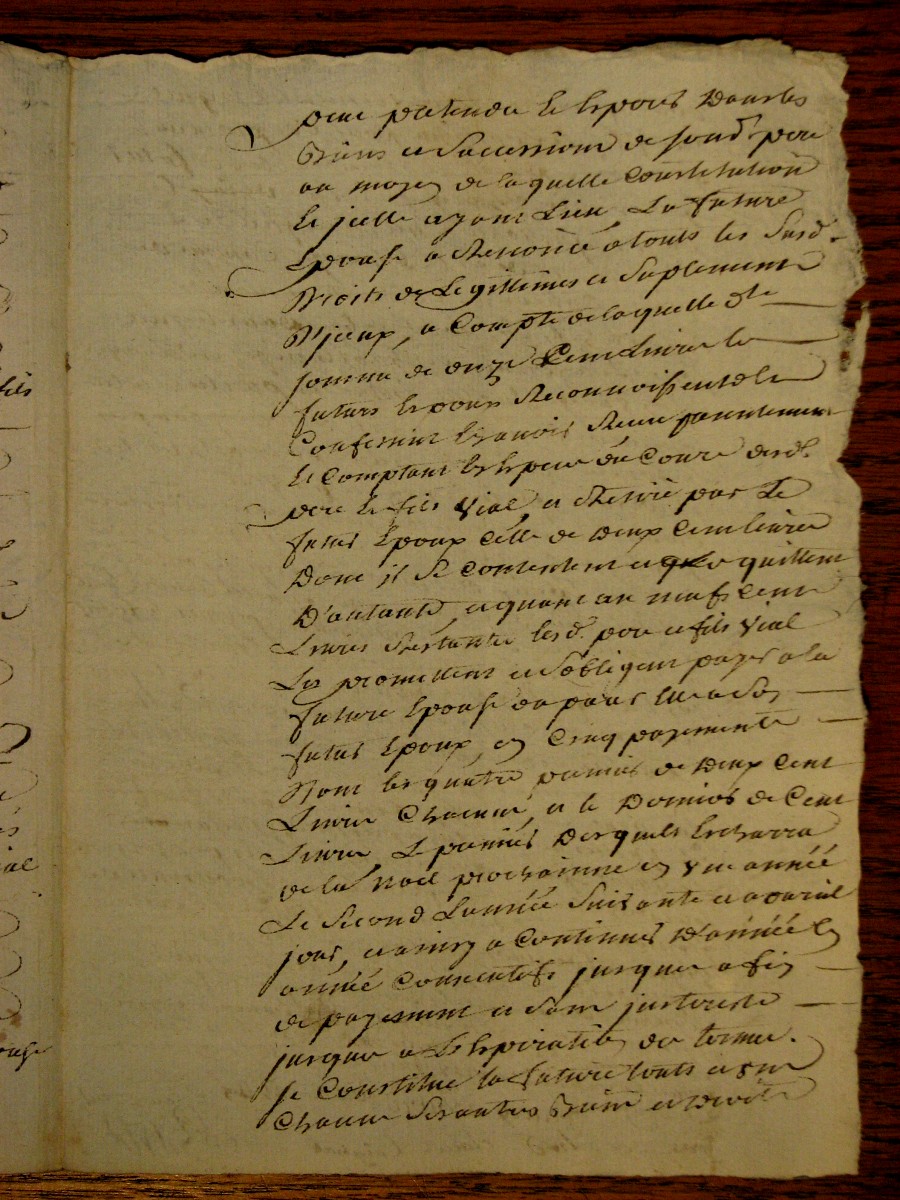 peut pretendre et esperer dans les
Biens et successions de sond. pere
au moyen de laquelle Constitution
et icelle ayant Lieu La future
Epouse a Renoncé a touts les susd.
Droits de Legittimes et Suplement
D'iceux, a Compte de laquelle dte
somme de onze Cent Livres les
futurs Epoux Reconnoissent et
Confessent Avoir Receu
et Comptant en Espece du Cours desd.
pere et fils Vial, et Retiré par Le
futur Epoux Celle de Deux Cent livres
Dont il se Contentent et quittent
D'autant, et quant au neuf Cent
Livres Restantes lesd. pere et fils Vial
Les promettent et s'obligent payer a la
future Epouse ou pour Elle a son
futur Epoux, en Cinq payements
Dont les quatre premiers de Deux Cent
Livres Chacun, et le Dernier de Cent
Livres, Le premier Desquels Echerra
de la Noel prochainne en Une année
Le Second L'année Suivante et a pareil
jour, et ainsy a Continuer D'année en
année Consecutifs jusques a fin
de payement et sans interests
jusques a L'Expiration des termes.
se Constitue la future touts et un
Chacun Ses autres Biens et Droits
fils
ial